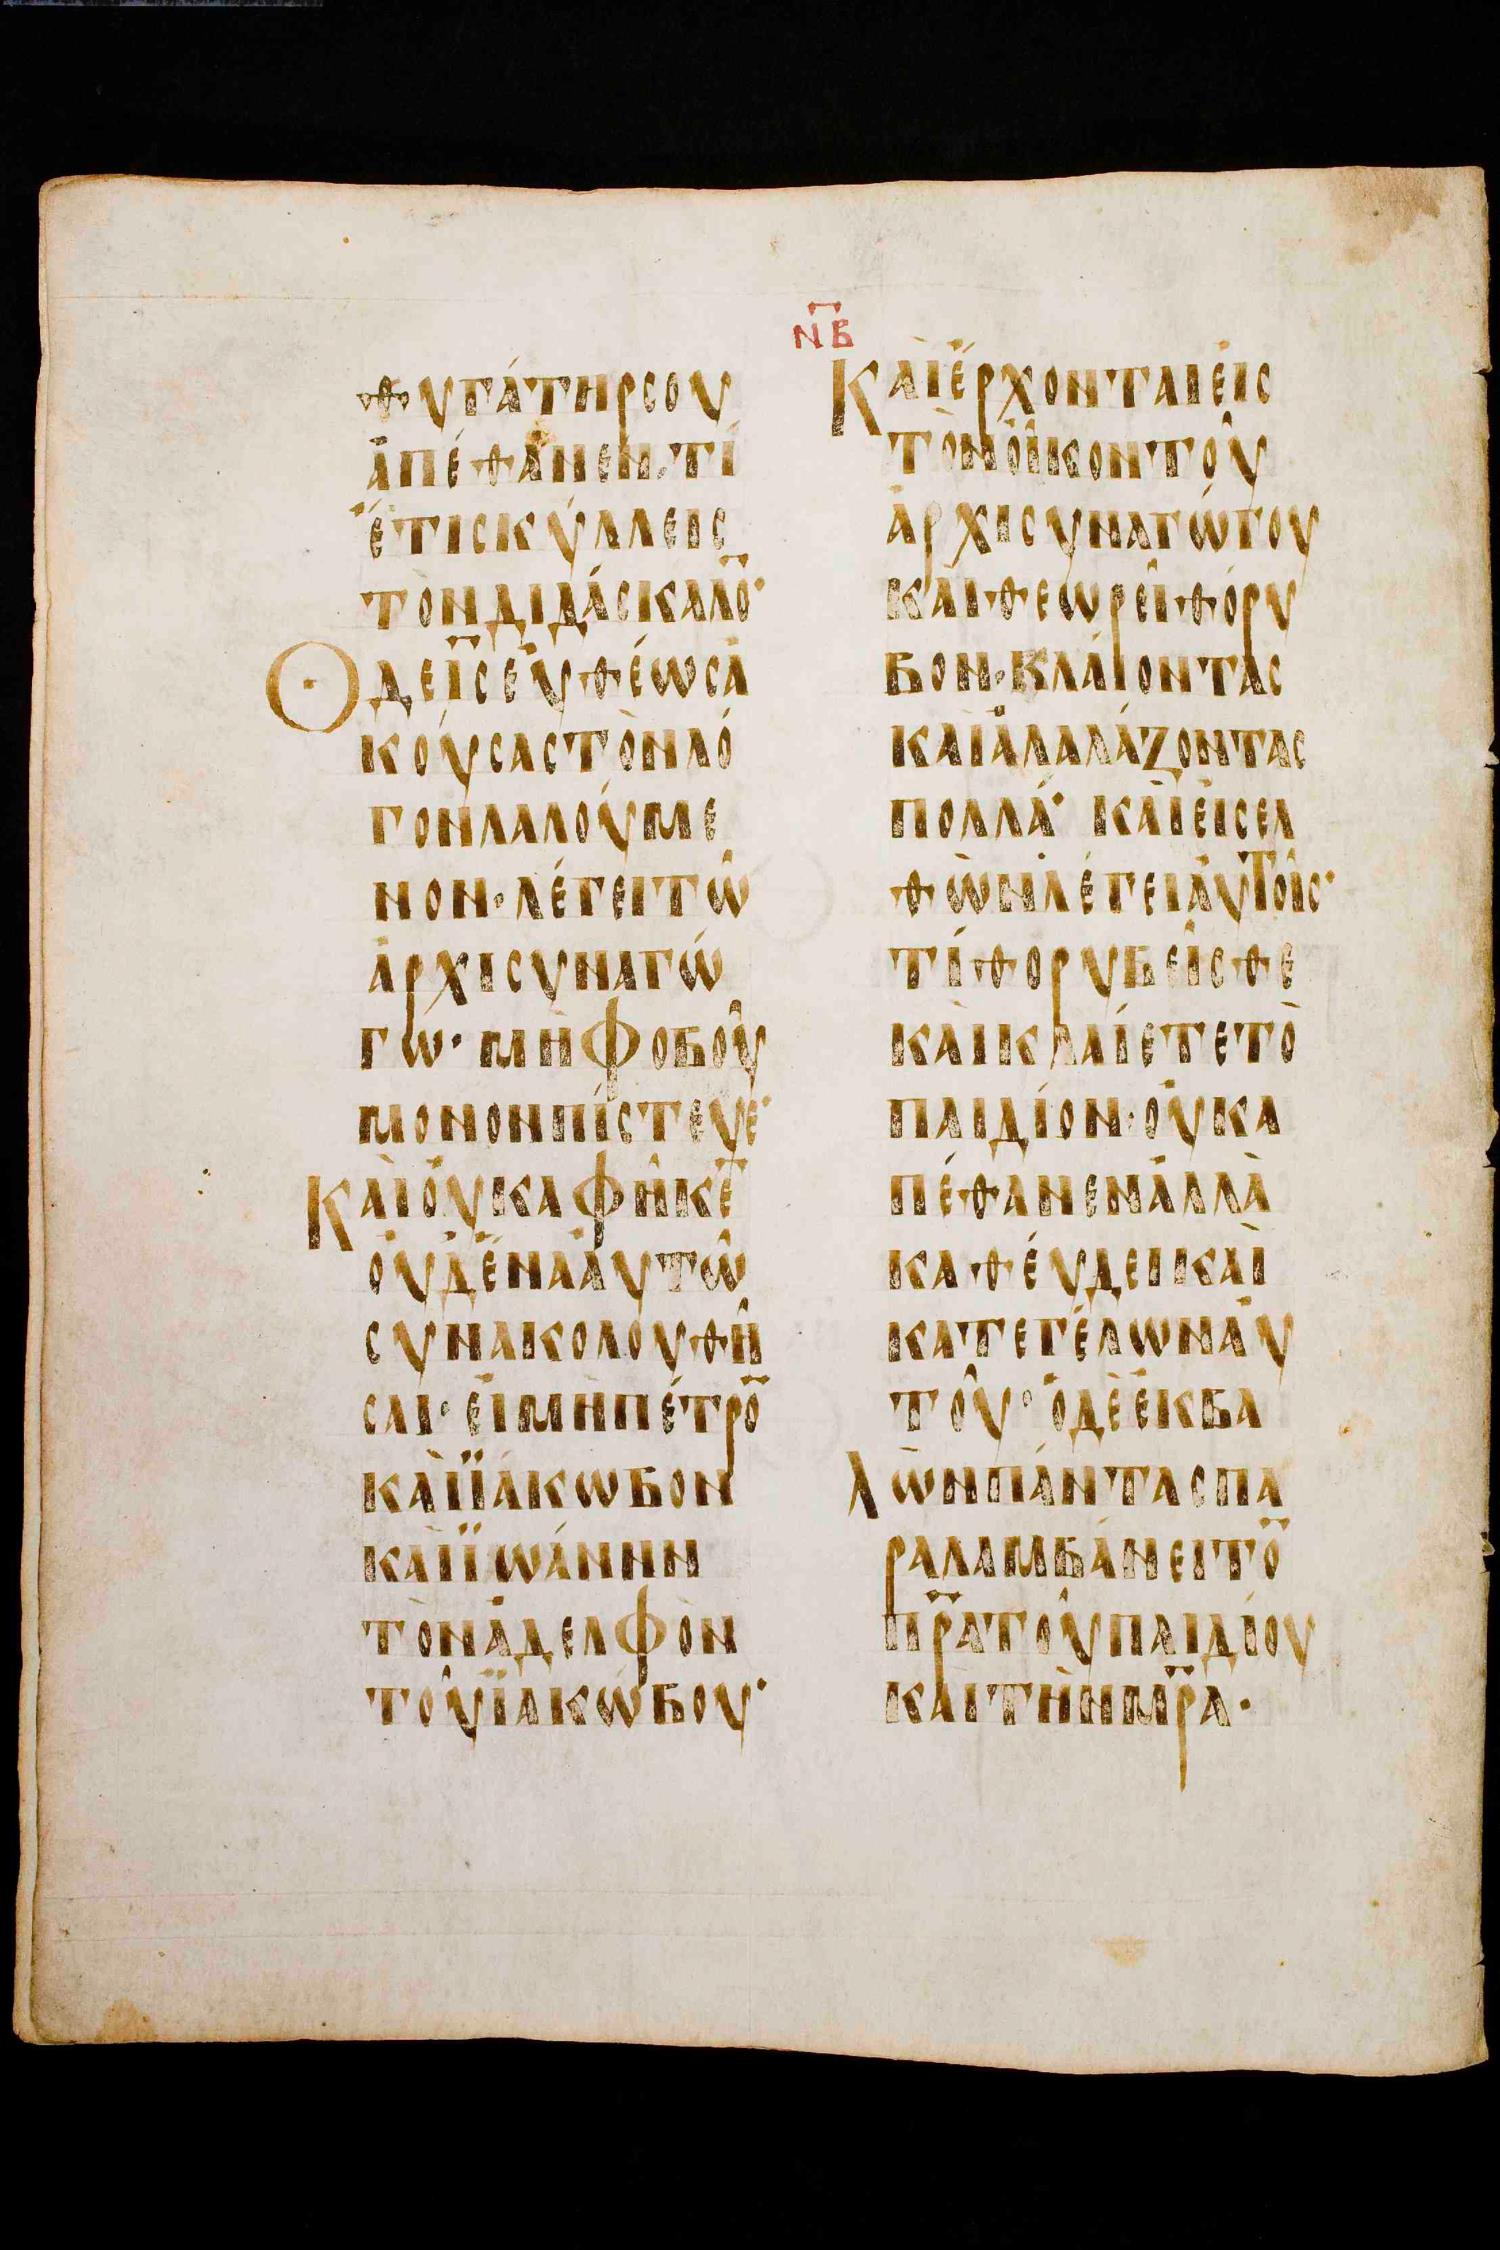 θυγάτηρσου
ἀπέθανεν· τί
ἔτισκύλλεις
τὸνδιδάσκαλο̅·
Ὁδὲι̅ς̅εὐθέωςἀ
κούσαςτὸνλό
γονλαλούμε
νον· λέγειτῶ
ἀρχισυναγώ
γω· μὴφοβοῦ
μονονπίστευε·
Καὶοὐκαφῆκε̅
οὐδἕνααὐτῶ
συνακολουθῆ
σαι· εἰμὴπέτρο̅
καὶϊάκωβον
καὶϊωάννην
τὸνἀδελφὸν
τοῦϊακώβου·
ν̅β̅
Καὶἔρχονταιεἰς
τὸνοἶκοντοῦ
ἀρχισυναγώγου
καιθεωρεῖθόρυ
βον· κλαίοντας
καὶἀλαλάζοντας
πολλά· καὶεἰσελ
θὼνλέγειαὐτοῖς·
τίθορυβεῖσθε
καὶκλαίετετὸ
παιδίον· οὐκα
πέθανενἀλλὰ
καθέυδεικαὶ
κατεγέλωναὐ
τοῦ· ὁδὲἐκβα
λὼνπάνταςπα
ραλαμβάνειτο̅
π̅ρ̅ατοῦπαιδίου
καὶτὴνμ̅ρ̅α·